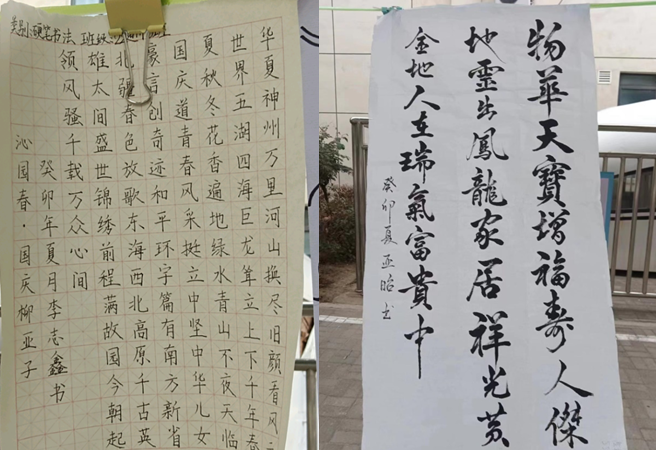 类别:硬笔书法 班级
华夏神州万里河山换尽旧颜看风
世界五湖四海巨龙耸立上下千年春
夏秋冬花香遍地绿水青山不夜天临
国庆道青春风采挺立中坚中华儿女
豪言创奇迹和平环字篇有南方新省
北疆春色放歌东海西北高原千古英
雄太间盛世锦绣前程满故国今朝起
领风骚千载万众心间
癸卯年夏月李志鑫书
沁国春·国庆柳亚子
物華天寶增福壽人傑
地靈出鳳龍家居祥光黄
金地人在瑞氣富貴中
癸卯夏亚昭书